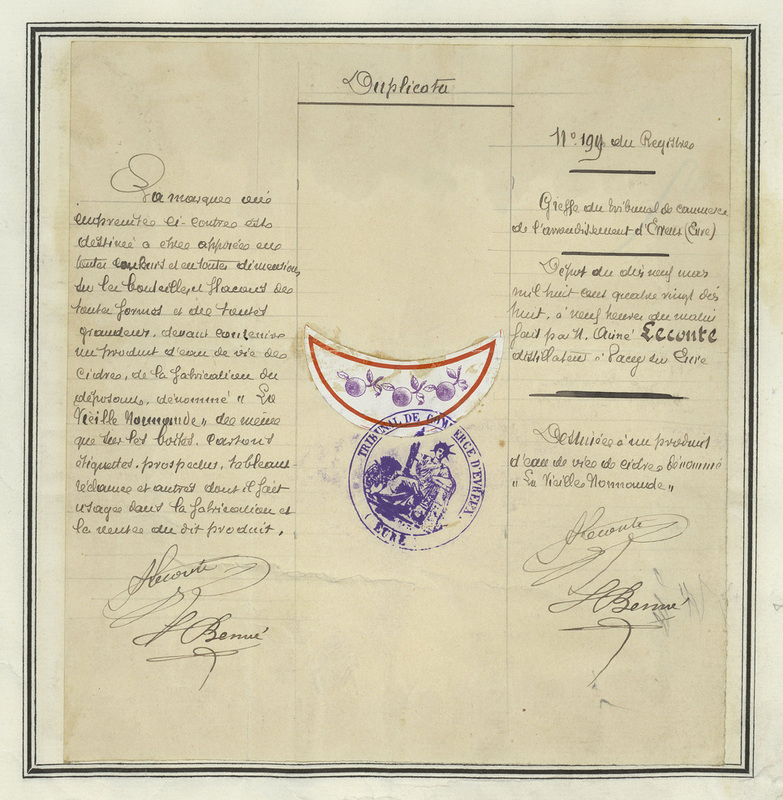 Duplicata
La marque une
empreinte ci-contre est
destinée à être apposée en
toutes couleurs et en toutes dimensions
sur les bouteilles et flacons de
toutes formes et de toutes
grandeurs, devant contenir
un produit d'eau de vie de
cidre, de la fabrication du
déposant, dénommé " La
Vieille Normande " de même
que sur les boîtes, cartons
étiquettes, prospectus, tableaux
réclame et autres dont il fait
usage dans la fabrication et
la vente du dit produit.
ALeconte
Benné
TRIBUNAL DE COMMERCE D'EVREUX
EURE
N° 199 du Registre
Greffe du tribunal de commerce
de l'arrondissement d'Evreux (Eure)
Dépôt du dix neuf mars
mil huit cent quatre vingt dix
huit, à neuf heures du matin
fait par M. Aimé Leconte
distillateur à Pacy sur Eure
Destinée à un produit
d'eau de vie de cidre dénommé
" La Vieille Normande "
ALeconte
Benné